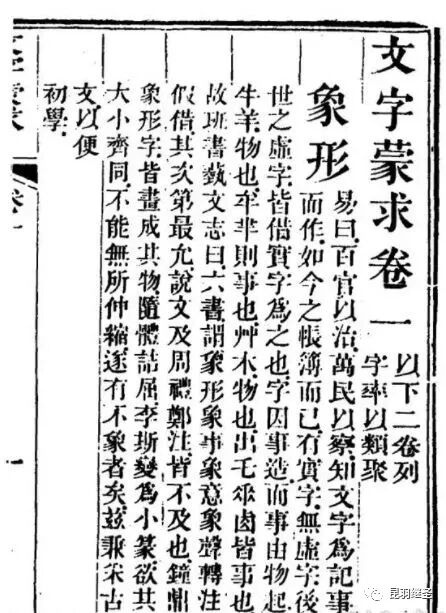 文字蒙求卷一
以下二卷列
字率以類聚
象形
易曰百官以治萬民以察知文字爲記事
而作如今之帳簿而已有實字無虛字後
世之虛字皆借實字爲之也字因事造而事由物起
牛羊物也牟羋則事也艸木物也出乇𠂹卤皆事也
故班書藝文志曰六書謂象形象事象意象聲轉注
假借其次第最允說文及周禮鄭注皆不及也鐘鼎
象形字皆畫成其物隨體詰屈李斯變爲小篆欲其
大小齊同不能無所伸縮遂有不象者矣茲兼采古
文以便
初學
一
昆羽继圣